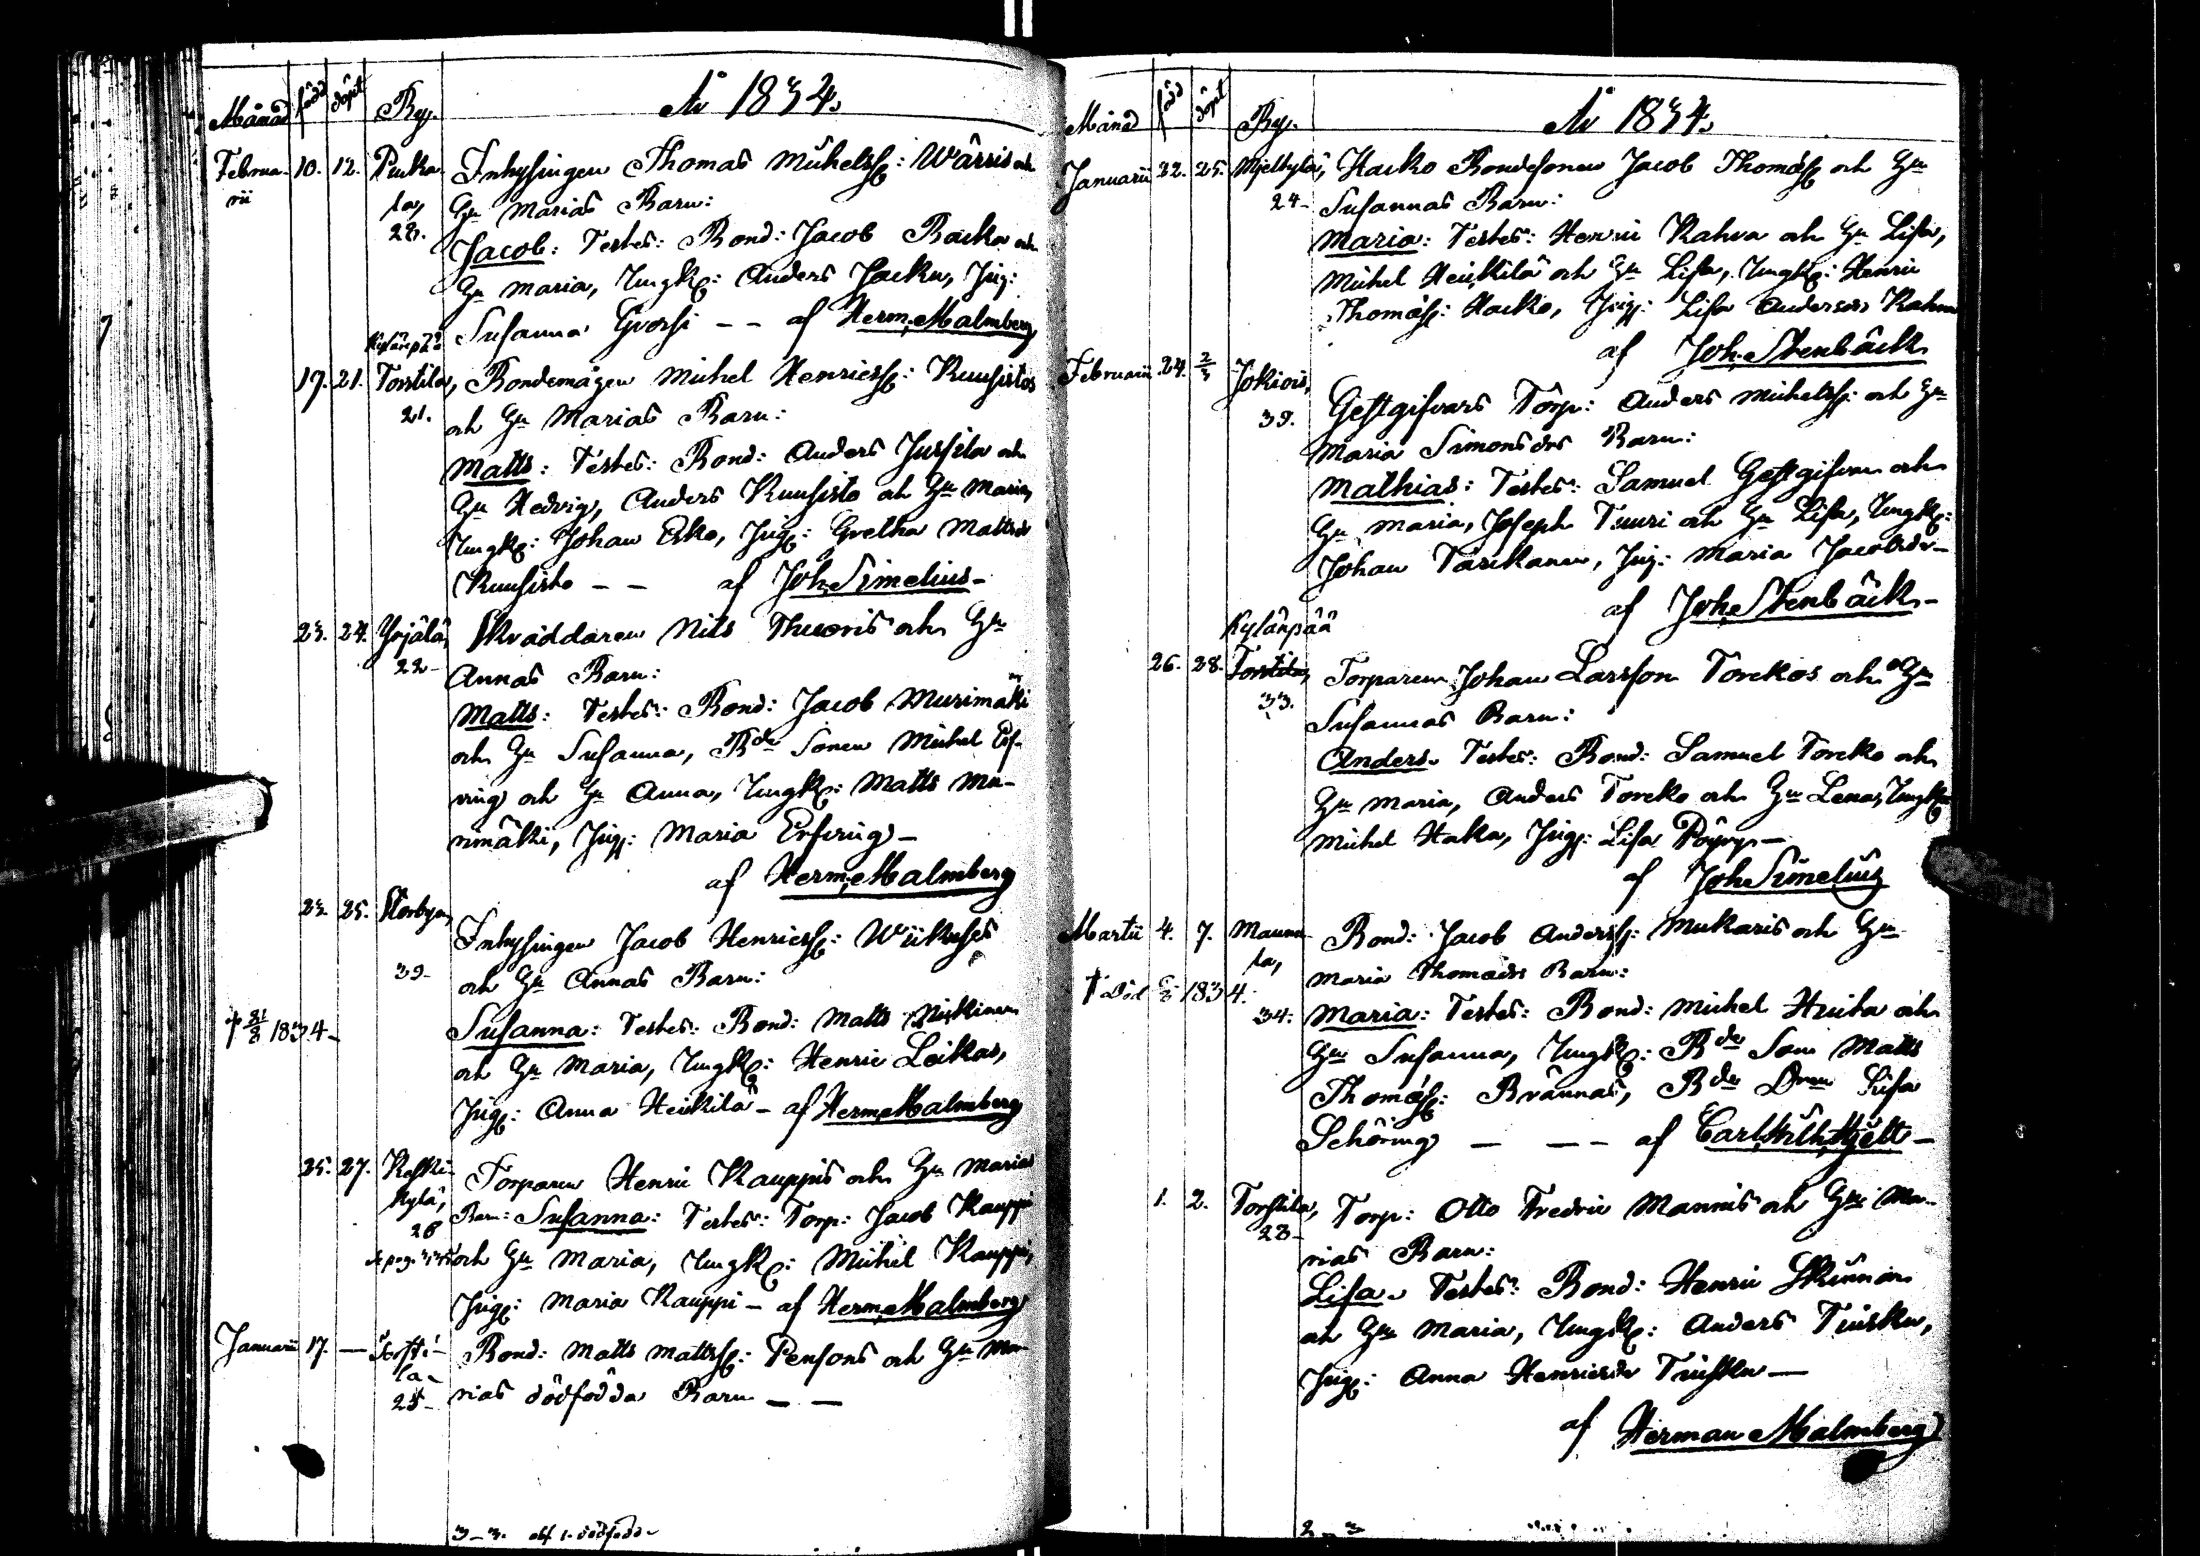 Månad född döpt By. År 1834.
Februa- 10. 12. Penka- Inhysingen Thomas Michelss: Wärris och
rii la, Hu Marias Barn:
28. Jacob: Testes: Bond: Jacob Backa och
Hu Maria, Ungk: Anders Jacku, Pig:
Susanna Grossi -- af Herm. Malmberg
Kylänpää
17. 21. Torstila, Bondemågen Michel Henricss: Kuusistos
21. och Hu Marias Barn:
Matts: Testes: Bond: Anders Jussila och
Hu Hedvig, Anders Kuusisto och Hu Maria,
Ungk: Johan Esko, Pig: Gretha Mattsdr
Kuusisto -- af Joh. Simelius-
23. 24. Yrjälä, Skräddaren Nils Thuoris och Hu
22- Annas Barn:
Matts: Testes: Bond: Jacob Murimäki
och Hu Susanna, Bde Sonen Michel Erf-
ving och Hu Anna, Ungk: Matts Mu-
rimäki, Pig: Maria Erfving-
af Herm. Malmberg
23. 25. Storbyn, Inhysingen Jacob Henricss: Wiikuses
39- och Hu Annas Barn:
† 31/8 1834- Susanna: Testes: Bond: Matts Niskinen
och Hu Maria, Ungk: Henric Leikas,
Pig: Anna Heikilä- af Herm. Malmberg
25. 27. Kaski- Torparen Henric Kauppis och Hu Marias
kylä, Barn: Susanna: Testes: Torp: Jacob Kauppi
28 och Hu Maria, Ungk: Michel Kauppi,
Pig: Maria Kauppi- af Herm. Malmberg
Januarii 17. — Torsti- Bond: Matts Mattss: Pensons och Hu Ma-
la- rias dödfödda Barn --
25-
3-3. och 1. dödfödd-
Månad född döpt By. År 1834.
Januarii 22. 25. Mjelkylä, Hacko Bondesonen Jacob Thomass och Hu
24- Susannas Barn:
Maria: Testes: Henric Rahva och Hu Lisa,
Michel Heikkilä och Hu Lisa, Ungk: Henric
Thomass: Hacko, Pig: Lisa Andersdr Rahva
af Joh. Stenbäck
Februarii 24. 2/3 Jokiois, Gestgifvars Torp: Anders Michelss: och Hu
39. Maria Simonsdrs Barn:
Mathias: Testes: Samuel Gestgifvar och
Hu Maria, Joseph Tuuri och Hu Lisa, Ungk:
Johan Tarikanen, Pig: Maria Jacobsdr-
af Joh. Stenbäck-
Kylänpää
26. 28. Torstila, Torparen Johan Larsson Torckos och Hu
33. Susannas Barn:
Anders. Testes: Bond: Samuel Torcko och
Hu Maria, Anders Torcko och Hu Lena, Ungk:
Michel Haka, Pig: Lisa Pöyry-
af Joh. Simelius
Martii 4. 7. Maunu- Bond: Jacob Anderss: Mukaris och Hu
la, Maria Thomadrs Barn:
† död 6/8 1834.
34. Maria: Testes: Bond: Michel Huita och
Hu Susanna, Ungk: Bde Son Matts
Thomass: Brännas, Bde Dren Lisa
Schöring — -- af Carl Wilh. Hjelt-
1. 2. Torstila, Torp: Otto Fredric Mannis och Hu Ma-
28- rias Barn:
Lisa. Testes: Bond: Henric Skinnar
och Hu Maria, Ungk: Anders Tuisku,
Pig: Anna Henricsdr Tuisku—
af Herman Malmberg
2-3